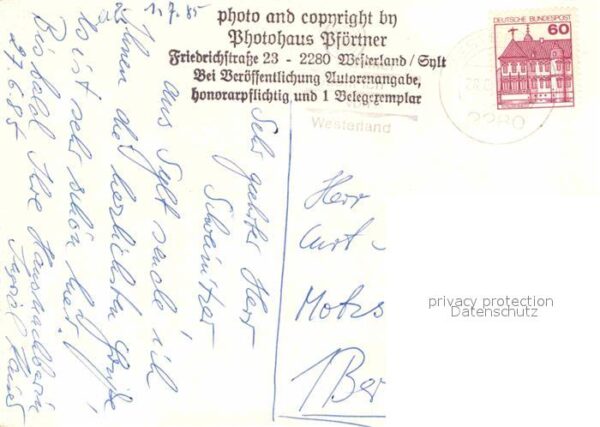 photo and copyright by
Photohaus Pförtner
Friedrichstraße 23 - 2280 Westerland / Sylt
Bei Veröffentlichung Autorenangabe,
honorarpflichtig und 1 Belegexemplar
DEUTSCHE BUNDESPOST
60
2280
Westerland
1.7.85
Sehr geehrter Herr
Schweinitzer
aus Sylt sende ich
Ihnen die herzlichsten Grüße,
es ist sehr schön hier!
Bis bald Ihre
27.6.85
Herr
Curt
Motzs
1 Ber
privacy protection
Datenschutz